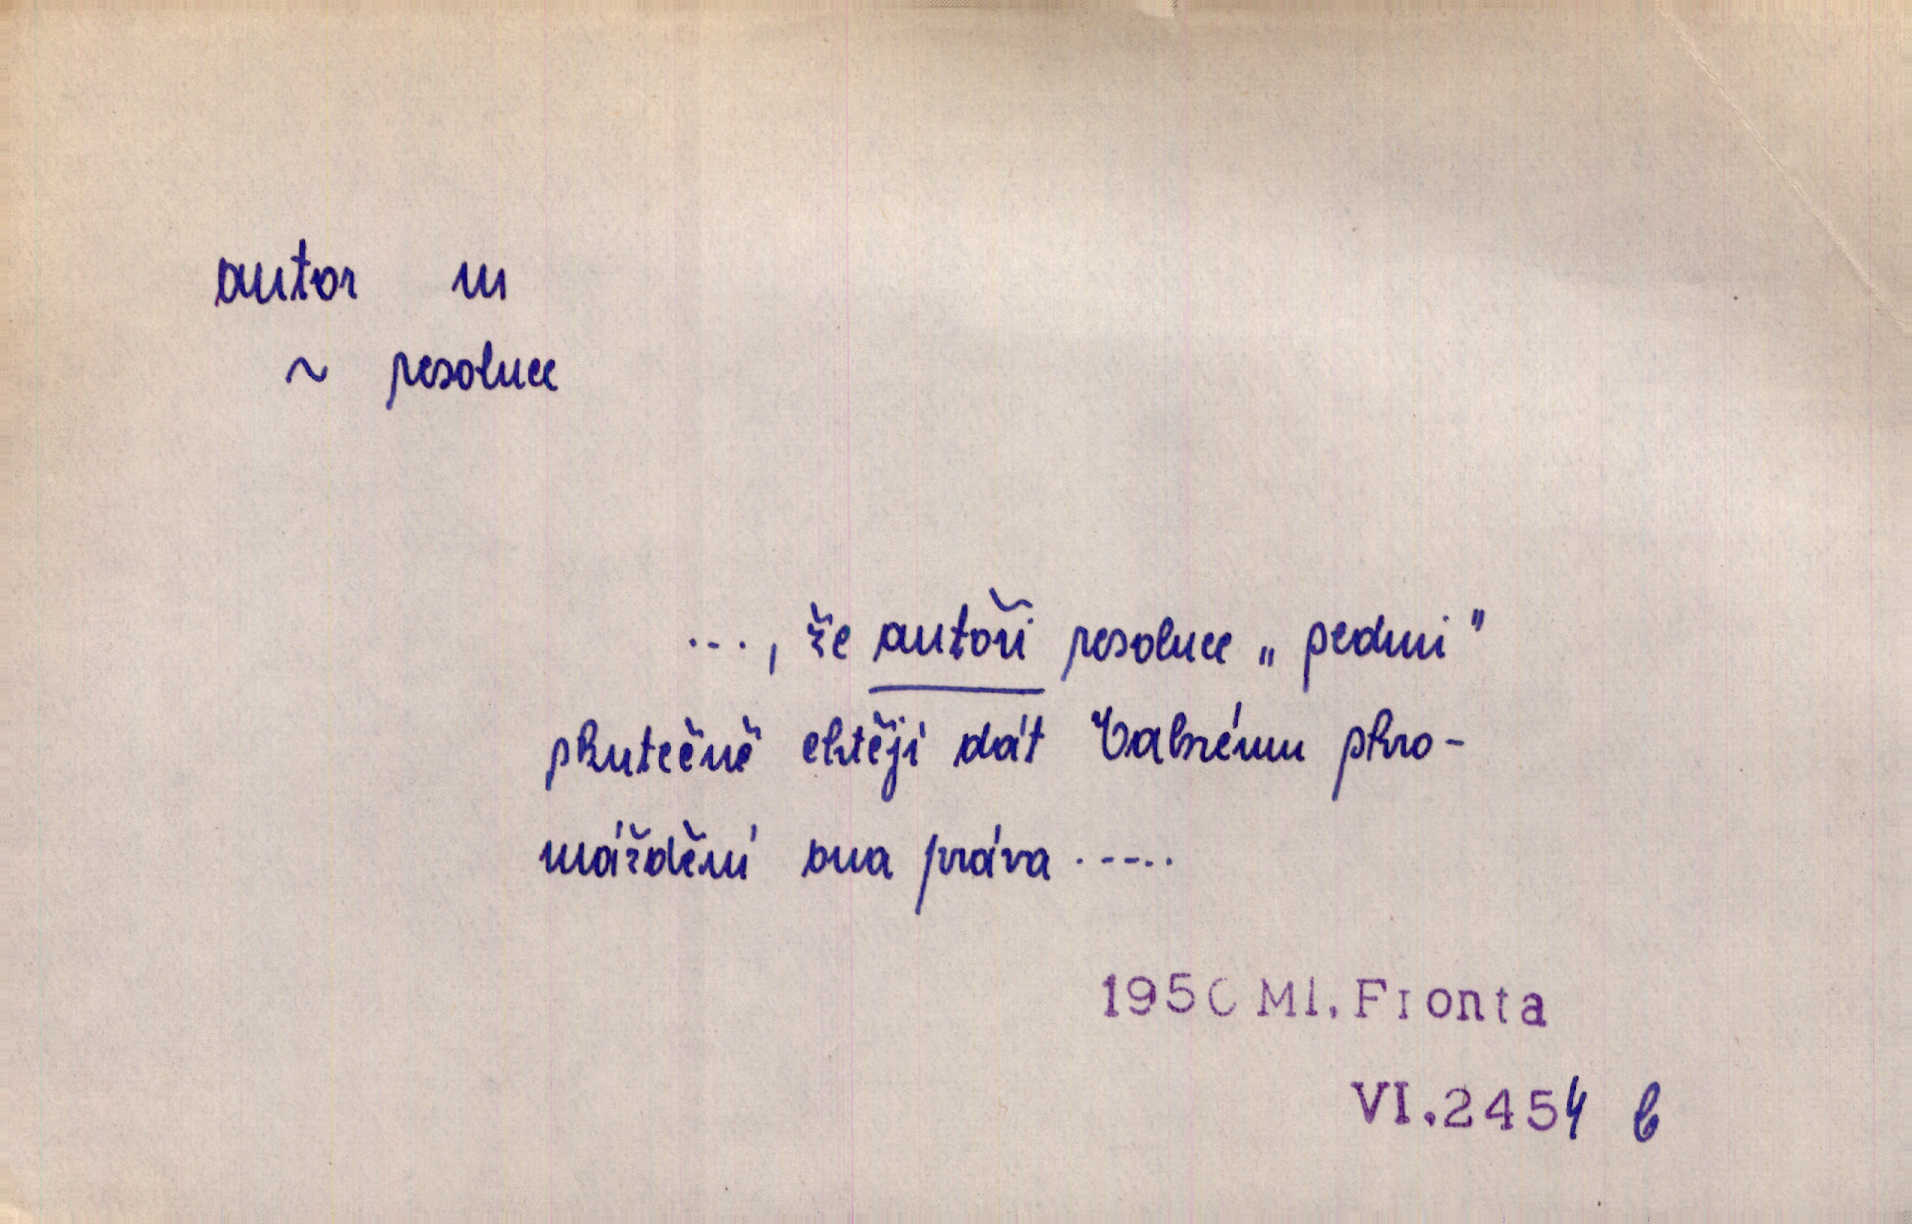 autor m
~ resoluce
..., že autoři resoluce „ sedmi "
skutečně chtějí dát Valnému shro-
máždění ona práva .....
1950 Ml. Fronta
VI.2454 b